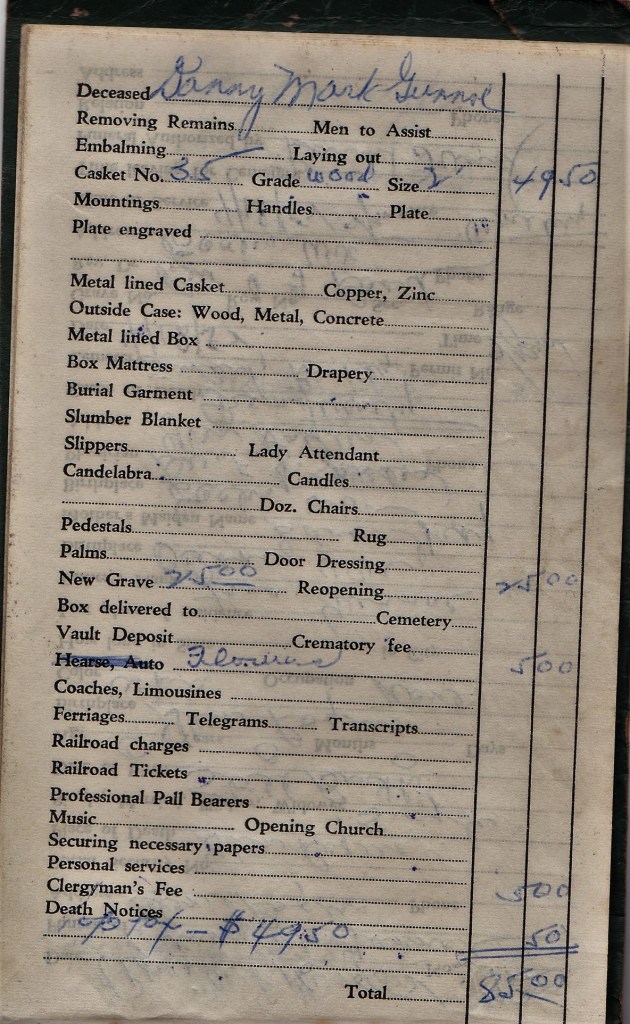 Deceased Danny Mark
Removing Remains Men to Assist
Embalming Laying out
Casket No. 35 Grade wood Size 2' 49 50
Mountings Handles Plate
Plate engraved
Metal lined Casket Copper, Zinc
Outside Case: Wood, Metal, Concrete
Metal lined Box
Box Mattress Drapery
Burial Garment
Slumber Blanket
Slippers Lady Attendant
Candelabra Candles
Doz. Chairs
Pedestals Rug
Palms Door Dressing
New Grave 25 00 Reopening 25 00
Box delivered to Cemetery
Vault Deposit Crematory fee
Hearse, Auto Flowers 5 00
Coaches, Limousines
Ferriages Telegrams Transcripts
Railroad charges
Railroad Tickets
Professional Pall Bearers
Music Opening Church
Securing necessary papers
Personal services
Clergyman's Fee 5 00
Death Notices
tax - $ 49.50 50
Total 85 00